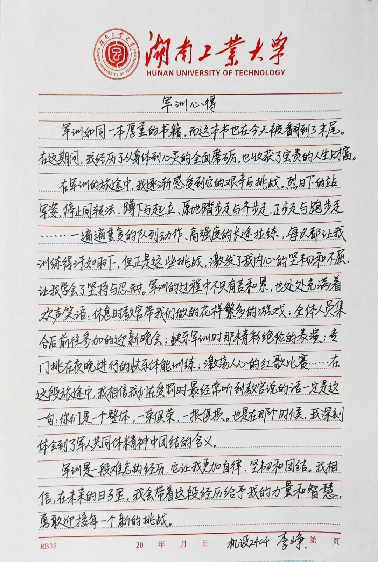 湖南工业大学
HUNAN UNIVERSITY OF TECHNOLOGY
军训心得
军训如同一本厚重的书籍，而这本书也在今天被翻到了末尾。
在这期间，我经历了从身体到心灵的全面磨砺，也收获了宝贵的人生财富。
在军训的旅途中，我逐渐感受到的艰辛与挑战。烈日下的站
军姿、停止间转法、蹲下与起立、原地踏步走与齐步走、正步走与跑步走
……一遍遍重复的队列动作，高强度的长途拉练，每次都让我
训练得汗如雨下，但正是这些挑战，激发了我内心的坚韧和不屈，
让我学会了坚持与忍耐。军训的过程中不只有苦和累，也处处充满着
欢声笑语：休息时教官带我们做的花样繁多的游戏；全体人员集
合后前往参加的迎新晚会；军训时那精彩绝伦的表演；专
门挑在夜晚进行的体能训练；激荡人心的红歌比赛……在
这段旅途中，我相信我们在受罚时最经常听到教官说的话一定是这
一句，你们是一个整体，一荣俱荣，一损俱损。也是在那个时候，我深刻
体会到了军人共同体精神中团结的含义。
军训是一段难忘的经历，它让我更加自律、坚韧和团结。我相
信，在未来的日子里，我会带着这段经历给予我的力量和智慧，
勇敢迎接每一个新的挑战。
RB35 20 年 月 日 机设 李峥 第 页